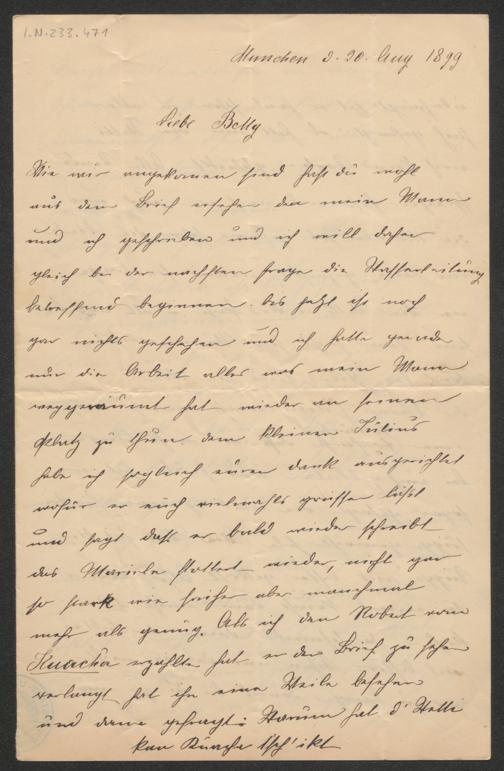 I.N.233.471
München d. 20. Aug 1899
Liebe Betty
Wie wir angekomen sind hast du wohl
aus dem Brief ersehen den mein Mann
und ich geschrieben und ich will daher
gleich bei der nächsten Frage die Wasserleitung
betreffend beginnen bis jetzt ist noch
gar nichts geschehen und ich hatte gerade
nur die Arbeit alles was mein Mann
weggeräumt hat wieder an seinen
Platz zu thun dem kleinen Julius
habe ich sogleich euren dank ausgerichtet
wofür er euch vielmahls grüssen lässt
und sagt daß er bald wieder schreibt
das Mariele stottert wieder, nicht gar
so stark wie früher aber manchmal
mehr als genug. Als ich dem Robert vom
erzählte hat er den Brief zu sehen
verlangt hat ihn eine Weile besehen
und dann gefragt: Warum hat d'
kan